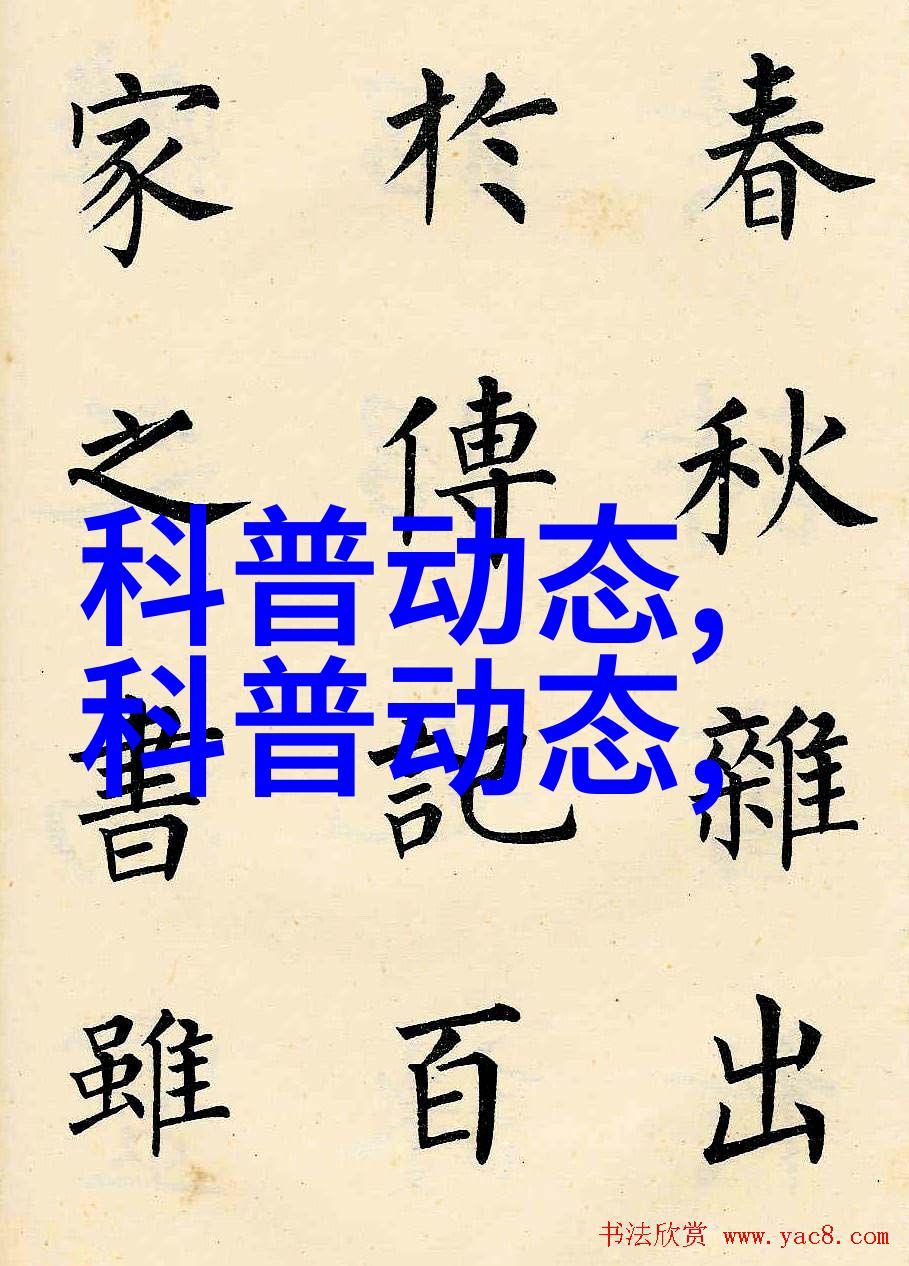 春秋雜出
於傳記百
家之書雖
科普动态,
科普动态,
书法欣赏 www.yac8.com